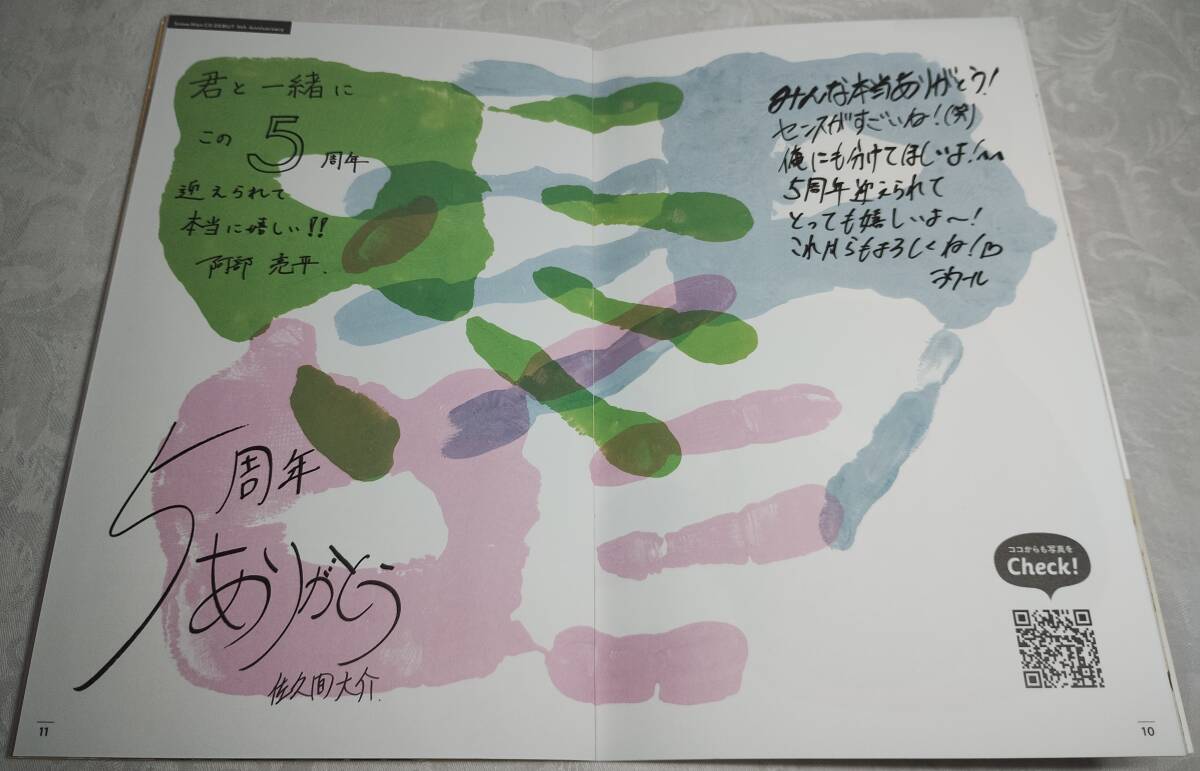 Snow Man CD DEBUT 5th Anniversary
君と一緒に
この5周年
迎えられて
本当に嬉しい!!
阿部 亮平.
みんな本当ありがとう!
センスがすごいね!(笑)
俺にも分けてほしいよ!
5周年迎えられて
とっても嬉しいよ〜!
これからもよろしくね!
コウール
5周年
ありがとう
佐久間大介.
ココからも写真を
Check!
11
10